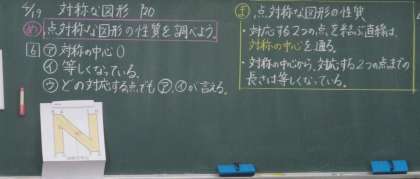 6/19 対称な図形 P.20
め 点対称な図形の性質を調べよう。
6 ㋐ 対称の中心O
㋑ 等しくなっている。
㋒ どの対応する点でも㋐、㋑が言える。
ま 点対称な図形の性質
・対応する2つの点を結ぶ直線は、
対称の中心を通る。
・対称の中心から、対応する2つの点までの
長さは等しくなっている。
N